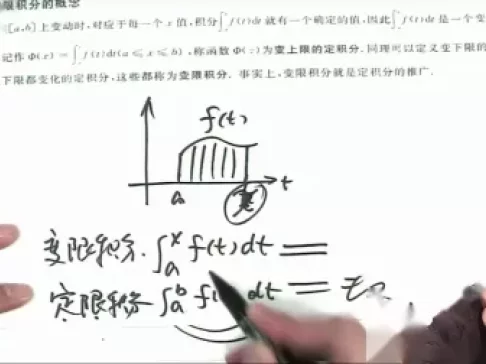 限积分的概念
[a,b]上变动时,对应于每一个x值,积分∫f(t)dt就有一个确定的值,因此∫f(t)dt是一个变
记作Φ(x)=∫f(t)dt(a≤x≤b),称函数Φ(x)为变上限的定积分.同理可以定义变下限的
下限都变化的定积分,这些都称为变限积分.事实上,变限积分就是定积分的推广.
f(t)
a x t
变限积分.∫ₐˣf(t)dt=
定限积分∫ₐᵇf dt=